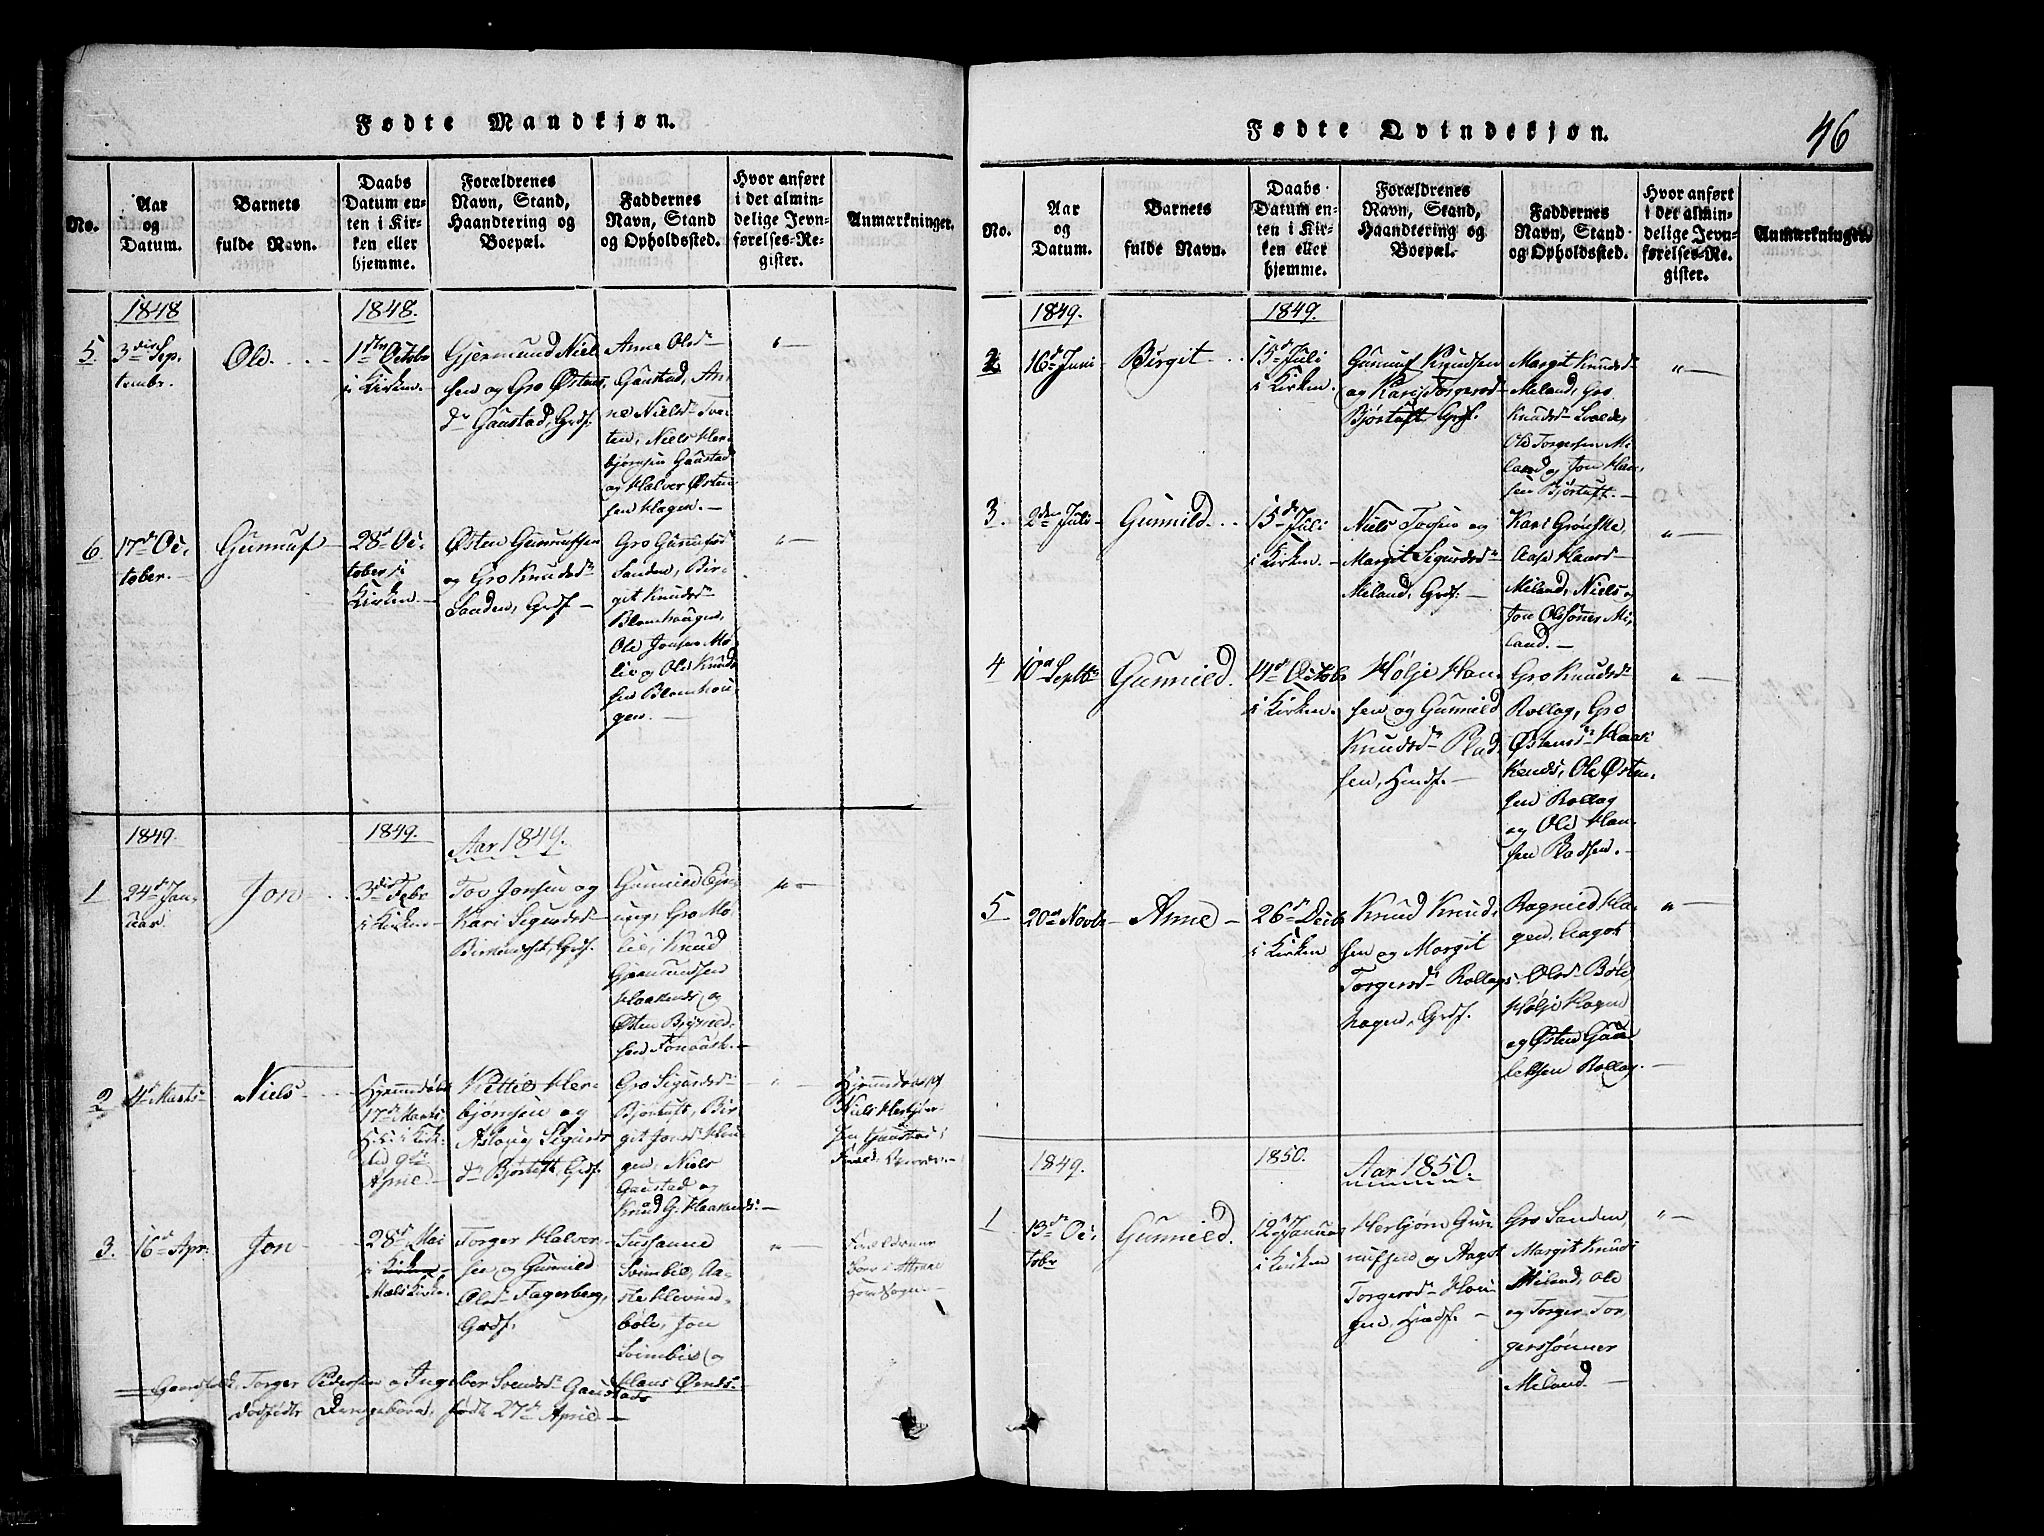 Fødte Mandkjøn.
No.
Aar
og
Datum.
Barnets
fulde Navn.
Daabs
Datum en-
ten i Kir-
ken eller
hjemme.
Forældrenes
Navn, Stand,
Haandtering og
Boepæl.
Faddernes
Navn, Stand
og Opholdssted.
Hvor anført
i det almin-
delige Jevn-
førelses-Re-
gister.
Anmærkninger.
1848
1848.
5.
3die Sep,
tembr.
Ole.
1ste Octobr
i Kirken.
Gjermund Niel
sen og Gro Østens
dr Gaustad, Grdf.
Anne Olsdr
Gaustad, An,
ne Nielsdr Tve,
ten, Niels Her,
bjørnsen Gaustad
og Halvor Østen
sen Hagen.
6.
17de Oc,
tober.
Gunnuf
28de Oc,
tober i
Kirken.
Østen Gunnufsen
og Gro Knudsdr
Sanden, Grdf
Gro Gunnufsdr
Sanden, Bir,
git Knudsdr
Blomhougen,
Ole Jonsen Mø,
lie og Ole Knud
sen Blomhou,
gen.
1849.
1849.
Aar 1849.
1
24de Jan,
uar.
Jon
3die Febr
i Kirken
Tov Jonsen og
Kari Sigurdsdr
Grdf.
Gunnild
ung, Gro Mø,
lie, Knud
Gjermundsen
Haakenæs og
Østen
sen
2
4de Marts
Niels
Hjemmedøbt
17de Marts
9de
April.
Kittil Her,
bjørnsen og
Aslaug Sigurds
dr Bjørtuft, Grdf
Gro Sigurdsdr
Bjørtuft, Bir,
git Jonsdr Hou,
gen, Niels
Gaustad og
Knud G. Haakenæs.
Hjemmedøbt af
Niels Herbjørn
sen Gaustad,
3.
16de Apr.
Jon
28de Mai
i Kirken
Mæls Kirke.
Torger Halvor,
sen og Gunnild
Olsdr Fagerberg,
Grdf.
Susanne
Svimbil, Aa,
ste Hevned,
bøle, Jon
Svimbil og
Hans Ørnes.
Forældrene
boer i Attraa
Sogn.
Gaardfolk, Torger Pedersen o Ingeber Svendsdr Gaustads
dødfødte Drengebarn, født 27de April.
Fødte Qvindekjøn.
46
No.
Aar
og
Datum.
Barnets
fulde Navn.
Daabs
Datum en-
ten i Kir-
ken eller
hjemme.
Forældrenes
Navn, Stand,
Haandtering og
Boepæl.
Faddernes
Navn, Stand
og Opholdssted.
Hvor anført
i det almin-
delige Jevn-
førelses-Re-
gister.
Anmærkninger.
1849.
1849.
2
16de Juni
Birgit
15de Juli
i Kirken.
Gunnuf Knudsen
og Kari Torgersdr
Bjørtuft Grdf.
Margit Knudsdr
Miland, Gro
Knudsdr
Ole Torgersen Mi,
land og Jon Han,
sen Bjørtuft.
3.
2den Juli
Gunnild.
15de Juli
i Kirken.
Niels Torsen og
Margit Sigurdsdr
Miland, Grdf.
Kari Grønske,
Aase Haavsdr
Miland, Niels og
Jon Olssønner Mi,
land.
4
10de Septbr
Gunnild.
14de Octobr
i Kirken.
Hølje Han,
sen og Gunnild
Knudsdr Rød,
sen, Husf.
Gro Knudsdr
Rollag, Gro
Østensdr Haa,
kenæs, Ole Østen,
sen Rollag
og Ole Han,
sen Rødsen.
5
20de Novbr
Anne
26de Decbr
i Kirken
Knud Knud,
sen og Margit
Torgersdr Rollags,
hagen, Grdf.
Ragnild Ha,
gen, Aagot
Olsdr Bøle,
Hølje Hagen
og Østen Gun
leksen Rollag.
1849.
1850.
Aar 1850.
1
13de Oc,
tobr
Gunnild.
12te Januar
i Kirken
Herbjørn Gun,
nufsen og Aagot
Torgersdr Hou,
gen, Husf.
Gro Sanden,
Margit Knudsdr
Miland, Ole
og Torger Tor,
gerssønner
Miland.